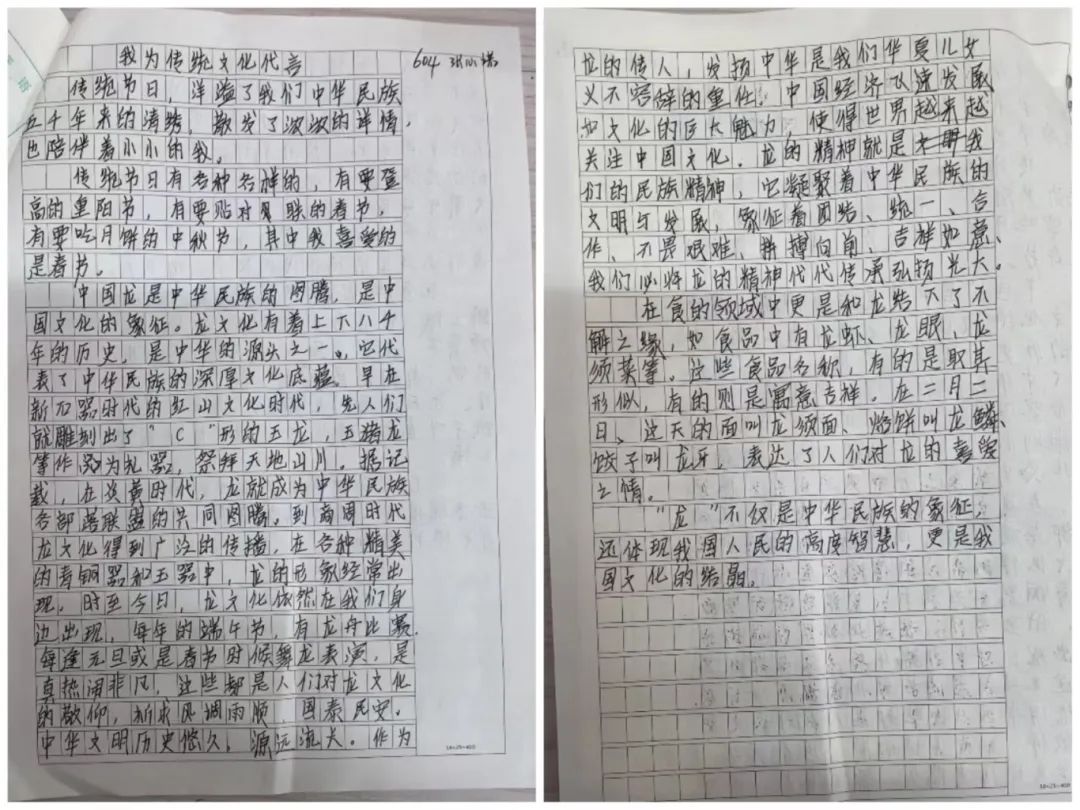 我为传统文化代言
604
传统节日，洋溢了我们中华民族
五千年来的情结，散发了浓浓的详情，
也陪伴着小小的我。
传统节日有各种各样的，有要登
高的重阳节，有要贴对联的春节，
有要吃月饼的中秋节，其中我喜爱的
是春节。
中国龙是中华民族的图腾，是中
国文化的象征。龙文化有着上下八千
年的历史，是中华的源头之一。它代
表了中华民族的深厚文化底蕴。早在
新石器时代的红山文化时代，先人们
就雕刻出了“C”形的玉龙，玉猪龙
等作品为礼器，祭拜天地山川。据记
载，在炎黄时代，龙就成为中华民族
各部落联盟的共同图腾。到商周时代
龙文化得到广泛的传播，在各种精美
的青铜器和玉器中，龙的形象经常出
现，时至今日，龙文化依然在我们身
边出现，每年的端午节，有龙舟比赛，
每逢元旦或是春节时候舞龙表演，是
真热闹非凡，这些都是人们对龙文化
的敬仰，祈求风调雨顺，国泰民安。
中华文明历史悠久，源远流长。作为
16×25=400
龙的传人，发扬中华是我们华夏儿女
义不容辞的重任。中国经济飞速发展
和文化的巨大魅力，使得世界越来越
关注中国文化，龙的精神就是我
们的民族精神，它凝聚着中华民族的
文明与发展，象征着团结、统一、合
作、不畏艰难、拼搏向前、吉祥如意、
我们必将龙的精神代代传承弘扬光大。
在食的领域中更是和龙结下了不
解之缘，如食品中有龙虾、龙眼、龙
须菜等。这些食品名称，有的是取其
形似，有的则是寓意吉祥。在二月二
日，这天的面叫龙须面、烙饼叫龙鳞、
饺子叫龙牙，表达了人们对龙的喜爱
之情。
“龙”不仅是中华民族的象征，
还体现我国人民的高度智慧，更是我
国文化的结晶。